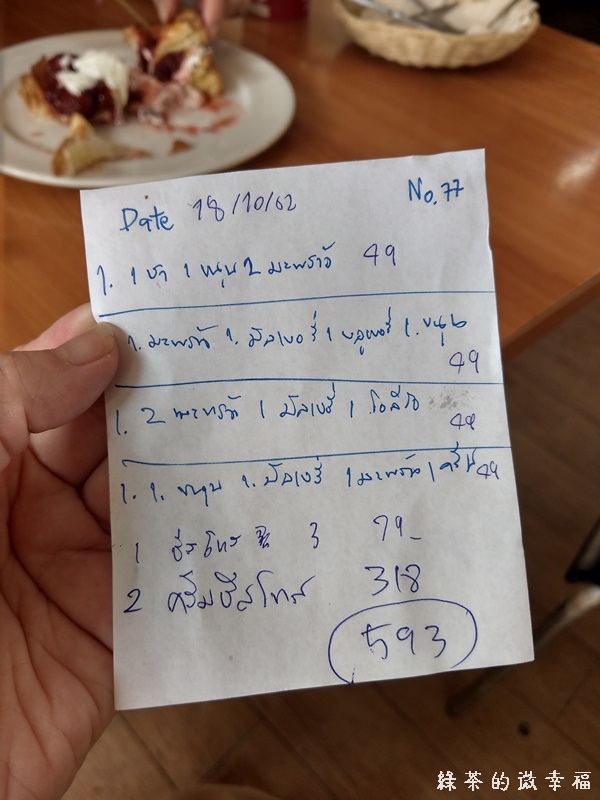 Date 18/10/62
No.77
1. 1 ชา 1 ขนุน 2 มะพร้าว 49
1. มะพร้าว 1. มัลเบอรี่ 1 บลูเบอรี่ 1. ขนุน
49
1. 2 มะพร้าว 1 มัลเบรี่ 1 โอลีโอ 49
1. 1. ขนุน 1. มัลเบรี่ 1 มะพร้าว 1 49
1 3 79_
2 ครีมชีสโทส 318
593
綠茶的微幸福